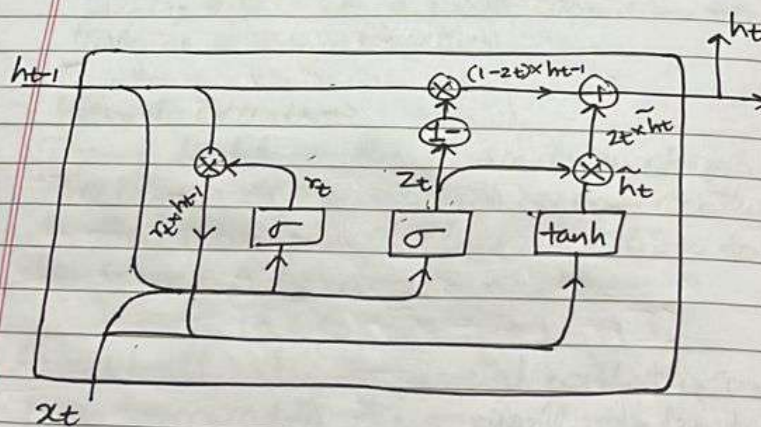 ht
ht-1
(1-zt)×ht-1
×
+
1-
zt×h̃t
×
rt
zt
×
h̃t
rt×ht-1
σ
σ
tanh
xt